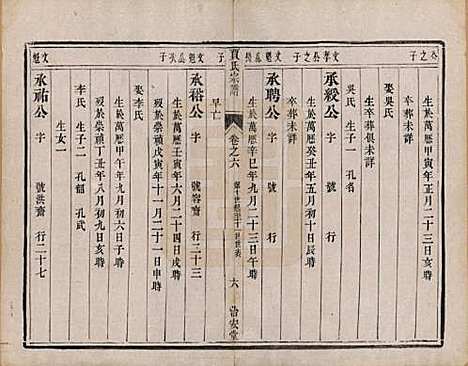 公之子
文孝公之子
文魁公長子
文魁公次子
文魁
生於萬歷甲寅年正月二十三日亥時
卒葬未詳
吳氏 生子一 孔名
生卒葬俱未詳
承毅公 字 號 行
生於萬歷癸丑年五月初十日辰時
卒葬未詳
承聘公 字 號 行
生於萬歷辛巳年九月二十三日午時
早亡
賈氏宗譜 卷之六 六
承裕公 字 號容齋 行二十三
生於萬歷壬寅年六月二十四日戌時
歿於崇禎戊寅年十一月二十一日申時
娶李氏
生於萬歷甲午年九月初六日辰時
歿於崇禎丁丑年八月初九日亥時
李氏 生子二 孔韶 孔武
生女一
承祐公 字 號洪齋 行二十七